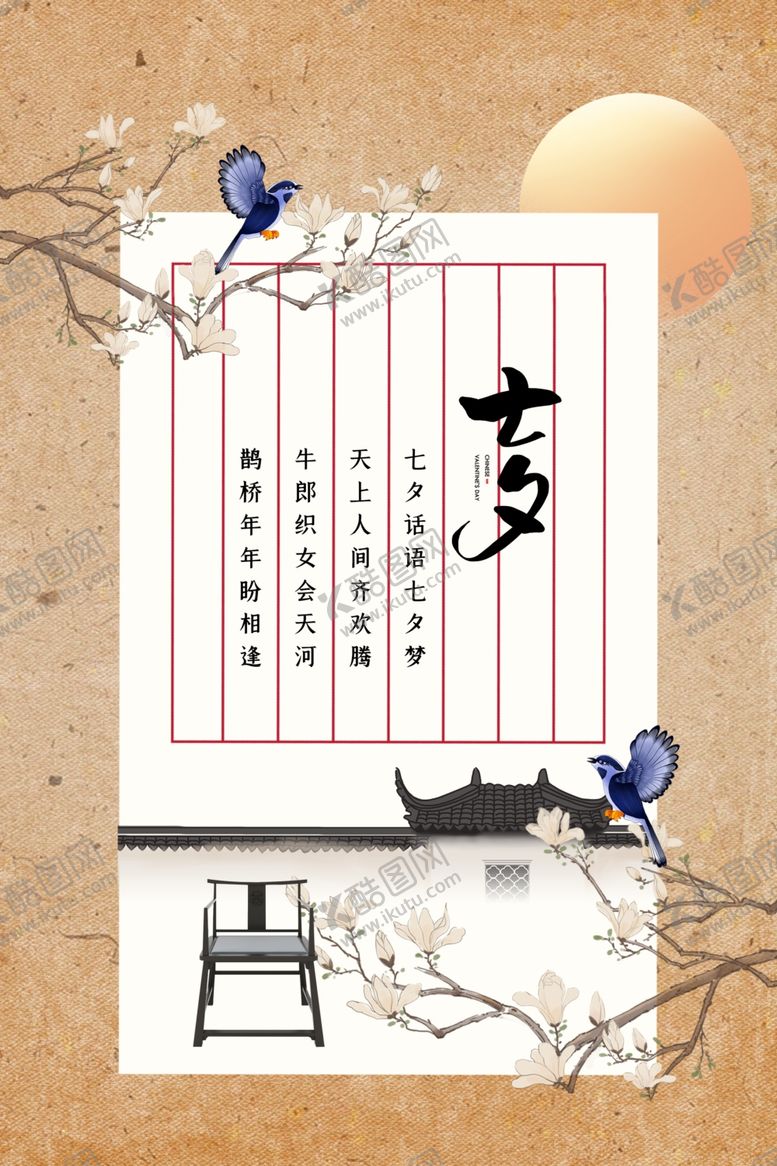 七夕
CHINESE
VALENTINE'S DAY
七夕话语七夕梦
天上人间齐欢腾
牛郎织女会天河
鹊桥年年盼相逢
酷图网
www.ikutu.com